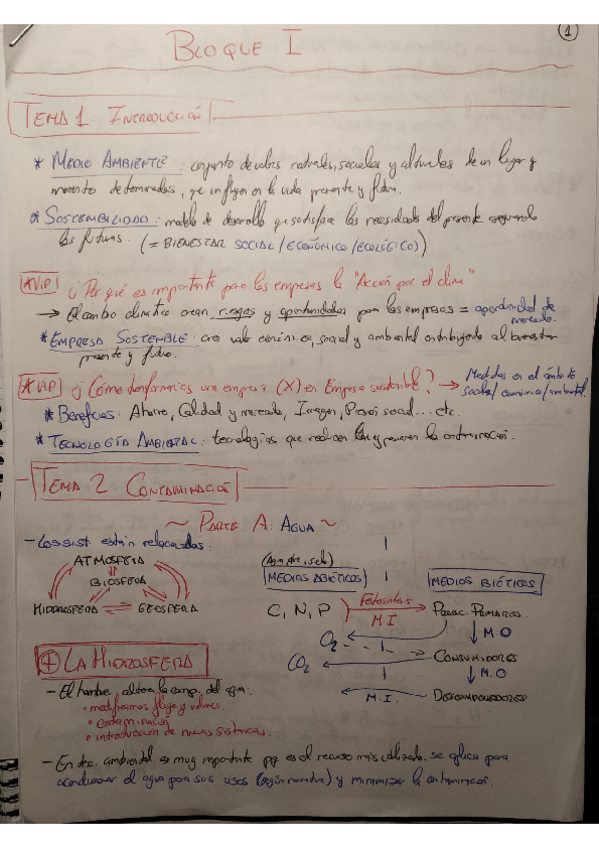 1
BLOQUE I
TEMA 1. INTRODUCCIÓN
* MEDIO AMBIENTE: conjunto de valores naturales, sociales y culturales de un lugar y
momento determinados, que influyen en la vida presente y futura.
* SOSTENIBILIDAD: modelo de desarrollo que satisface las necesidades del presente asegurando
las futuras. (= BIENESTAR SOCIAL/ECONÓMICO/ECOLÓGICO)
*VIP! ¿Por qué es importante para las empresas la "Acción por el clima"
→ El cambio climático crean riesgos y oportunidades para las empresas = oportunidad de
mercado.
* EMPRESA SOSTENIBLE: crea valor económico, social y ambiental contribuyendo al bienestar
presente y futuro.
*VIP! ¿Cómo transformarías una empresa (X) en Empresa sostenible? → Medidas en el ámbito
social/económico/ambiental.
* Beneficios: Ahorro, Calidad y mercado, Imagen, Presión social... etc.
* TECNOLOGÍA AMBIENTAL: tecnologías que reducen y previenen la contaminación.
TEMA 2. CONTAMINACIÓN
~ PARTE A: AGUA ~
- Los sist. están relacionados:
ATMOSFERA
BIOSFERA
HIDROSFERA GEOSFERA
(Agua, aire, suelo)
MEDIOS ABIÓTICOS MEDIOS BIÓTICOS
C, N, P Fotosíntesis Produc. PRIMARIOS
M.I
O₂ M.O
CO₂ CONSUMIDORES
M.O
M.I. DESCOMPONEDORES
+ LA HIDROSFERA
- El hombre altera la comp. del agua:
• modificamos flujo y volumen
• contaminación
• introducción de nuevas sustancias.
- En tec. ambiental es muy importante pq es el recurso más utilizado. se aplica para
acondicionar el agua para sus usos (según normativa) y minimizar la contaminación.